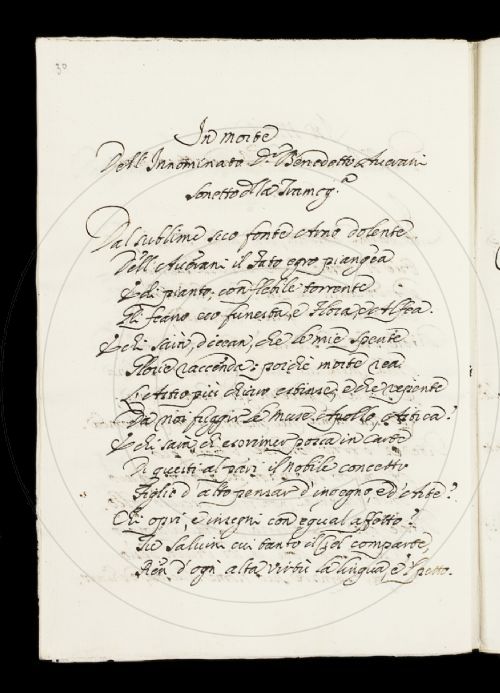 30
In morte
Dell' Innominato Dr. Benedetto Averani
Sonetto della Tramog.a
Dal sublime suo fonte Arno dolente
Dell' Averani il Fato egro piangea
E di pianto, con flebile torrente
Gli feano eco funesta, e Flora, et Alfea.
E chi sarà, dicean, che le mie spente
Glorie raccenda: poiché morte rea
L'Astro più chiaro estinse, e che repente
Da noi fuggir le Muse, Apollo, e Astrea?
E chi sarà, ch' esprimer possa in carte
Di questi al pari il nobile concetto
Figlio d' alto pensar d' ingegno, e d' Arte?
Chi opri, e insegni con egual affetto?
Tu Salvin cui tanto il Sol comparte,
Ren d' ogni alta virtù la lingua, e 'l petto.